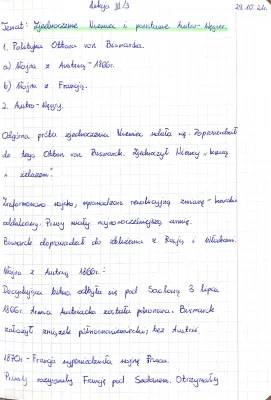 Lekcja III/3
29.10.21r.
Temat: Zjednoczenie Niemiec i powstanie Austro-Węgier.
1. Polityka Ottona von Bismarcka.
a) Wojna z Austrią - 1866r.
b) Wojna z Francją.
2. Austro-Węgry.
Odgórna próba zjednoczenia Niemiec udała się. Doprowadził
do tego Otton von Bismarck. Zjednoczył Niemcy "krwią
i żelazem".
Zreformowano wojsko, wprowadzono rewolucyjną zmianę -
odtylcowy. Prusy miały najnowocześniejszą armię.
Bismarck doprowadził do zbliżenia z Rosją i Włochami.
Wojna z Austrią 1866r.:
Decydująca bitwa odbyła się pod Sadową 3 lipca
1866r. Armia Austriacka została pokonana. Bismarck
założył związek północnoniemiecki, bez Austrii.
1870r - Francja wypowiedziała wojnę Prusom.
Prusacy rozgromili Francję pod Sedanem. Otrzymały